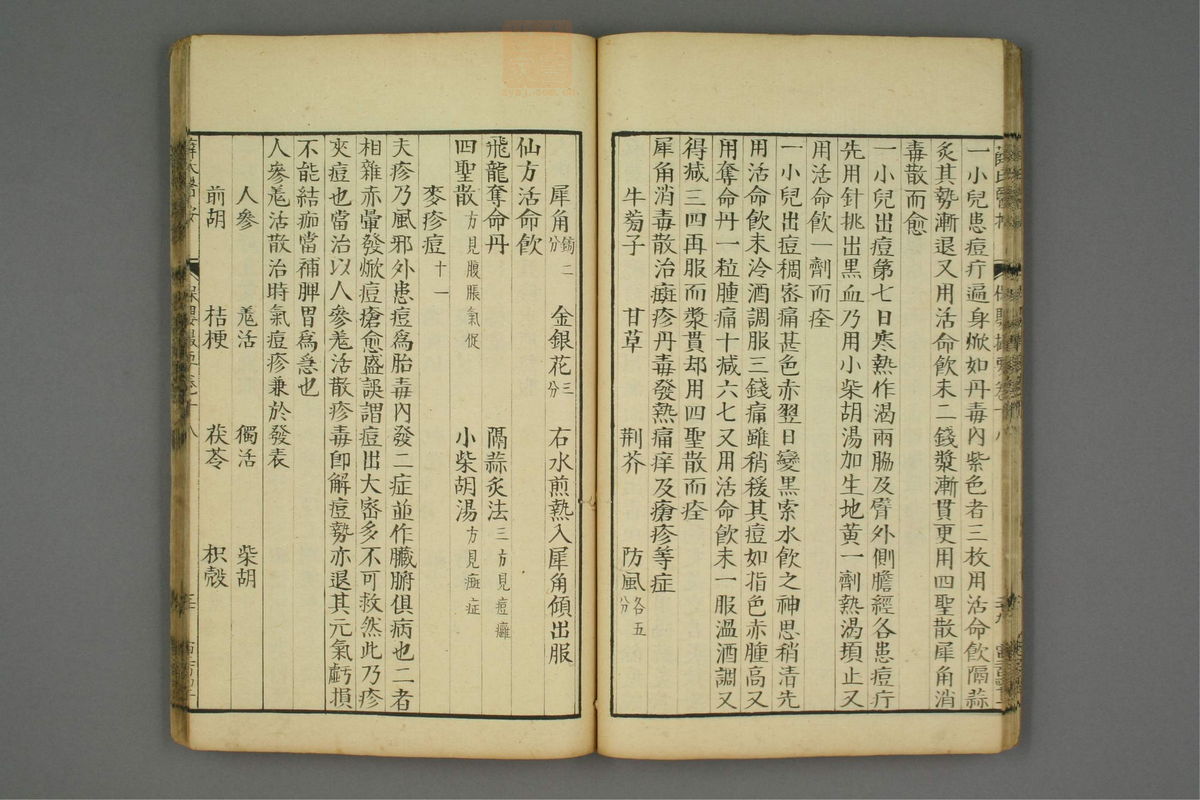 一小兒患痘疔遍身焮如丹毒內紫色者三枚用活命飲隔蒜
炙其勢漸退又用活命飲末二錢漿漸貫更用四聖散犀角消
毒散而愈
一小兒出痘第七日寒熱作渴兩脇及臂外側膽經各患痘疔
先用針挑出黑血乃用小柴胡湯加生地黄一劑熱渴頃止又
用活命飲一劑而痊
一小兒出痘稠密痛甚色赤翌日變黑索水飲之神思稍清先
用活命飲末泠酒調服三錢痛雖稍緩其痘如指色赤腫高又
用奪命丹一粒腫痛十減六七又用活命飲末一服溫酒調又
得減三四再服而漿貫却用四聖散而痊
犀角消毒散治癍疹丹毒發熱痛痒及瘡疹等症
牛蒡子 甘草 荆芥 防風各五分
犀角鎊二分 金銀花三分 右水煎熟入犀角傾出服
仙方活命飲
飛龍奪命丹 隔蒜炙法三方見痘癰
四聖散方見腹脹氣促 小柴胡湯方見癍症
麥疹痘十一
夫疹乃風邪外患痘爲胎毒內發二症並作臟腑俱病也二者
相雜赤暈發焮痘瘡愈盛誤謂痘出大密多不可救然此乃疹
夾痘也當治以人參羗活散疹毒卽解痘勢亦退其元氣虧損
不能結痂當補脾胃爲急也
人參羗活散治時氣痘疹兼於發表
人參 羗活 獨活 柴胡
前胡 桔梗 茯苓 枳殼